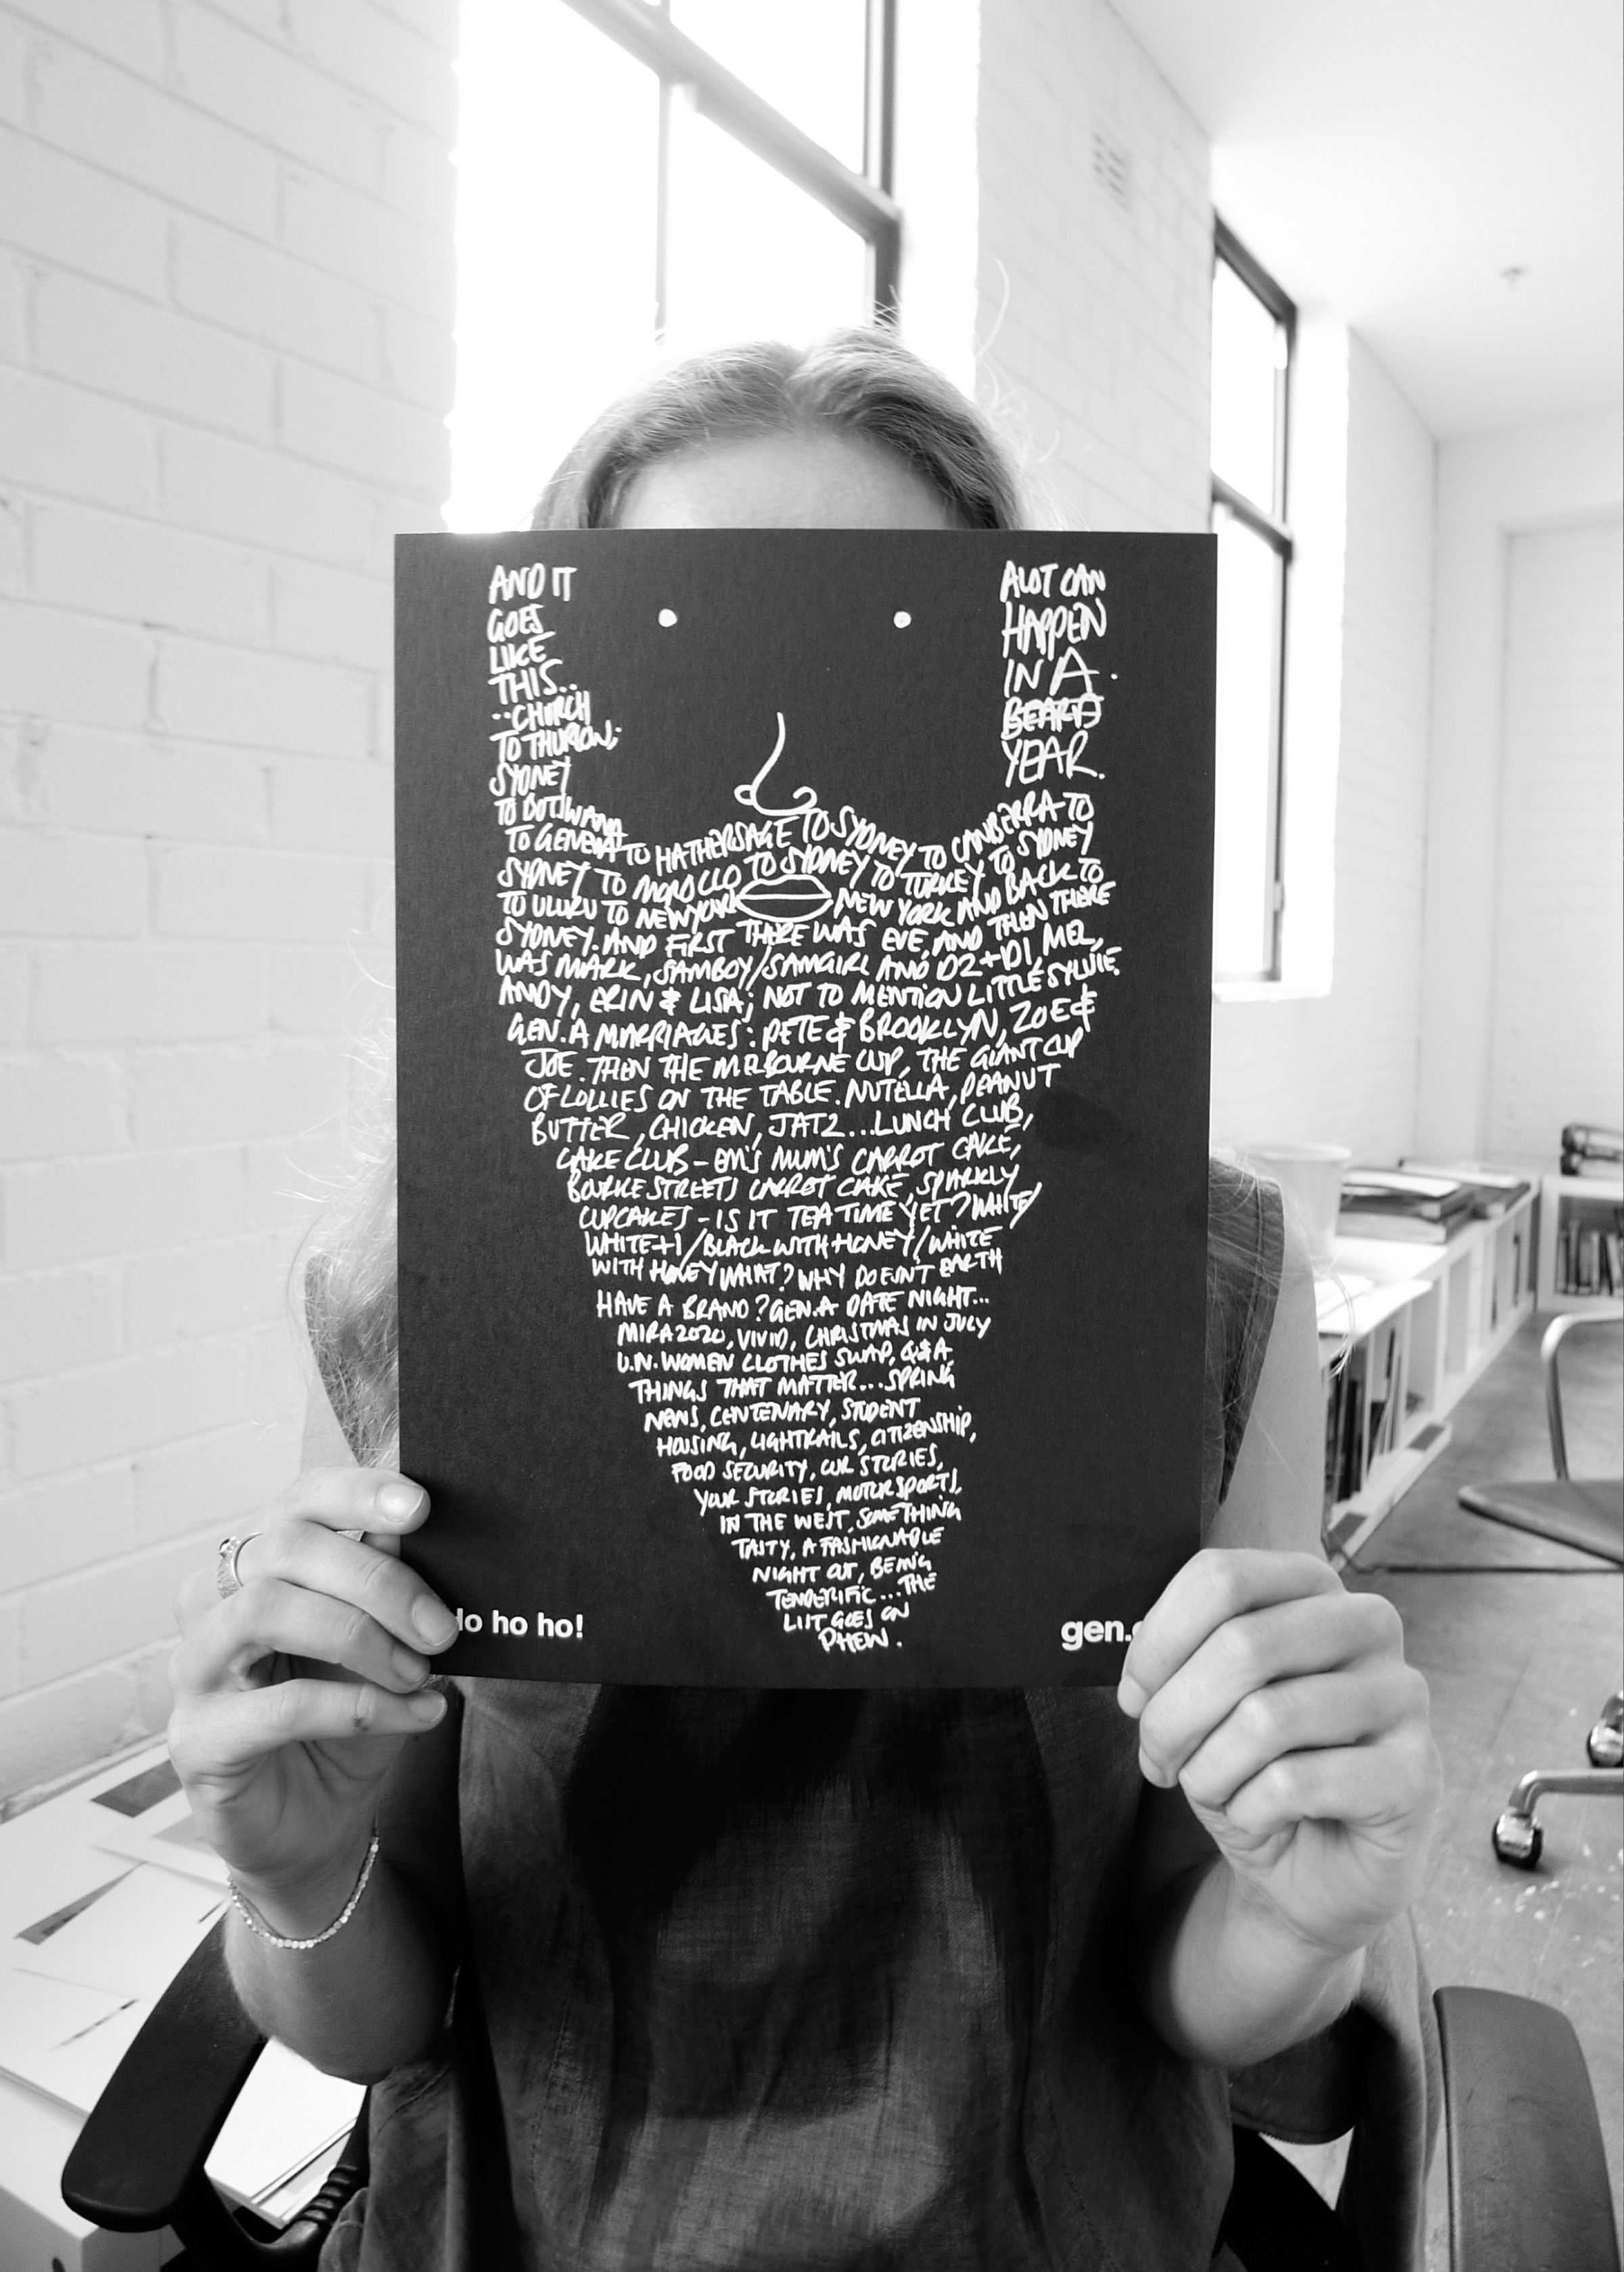 ALOT CAN
HAPPEN
IN A
BEARD
YEAR.
AND IT
GOES
LIKE
THIS..
..CHURCH
TO THURLOW;
SYDNEY
TO BOTSWANA
TO GENEVA TO HATHERSAGE TO SYDNEY TO CANBERRA TO
SYDNEY TO MOROCCO TO SYDNEY TO TURKEY TO SYDNEY
TO ULURU TO NEWYORK NEW YORK AND BACK TO
SYDNEY. AND FIRST THERE WAS EVE, AND THEN THERE
WAS MARK, SAMBOY/SAMGIRL AND D2+D1, MEL,
ANDY, ERIN & LISA; NOT TO MENTION LITTLE SYLVIE.
GEN.A MARRIAGES: PETE & BROOKLYN, ZOE &
JOE. THEN THE MELBOURNE CUP, THE GIANT CUP
OF LOLLIES ON THE TABLE. NUTELLA, PEANUT
BUTTER, CHICKEN, JATZ...LUNCH CLUB,
CAKE CLUB - EM'S MUM'S CARROT CAKE,
BOURKE STREETS CARROT CAKE, SPARKLY
CUPCAKES - IS IT TEA TIME YET? WHITE/
WHITE+1/BLACK WITH HONEY/WHITE
WITH HONEY WHAT? WHY DOESN'T EARTH
HAVE A BRAND? GEN.A DATE NIGHT...
MIRA2020, VIVID, CHRISTMAS IN JULY
U.N. WOMEN CLOTHES SWAP, Q&A
THINGS THAT MATTER...SPRING
NEWS, CENTENARY, STUDENT
HOUSING, LIGHTRAILS, CITIZENSHIP,
FOOD SECURITY, OUR STORIES,
YOUR STORIES, MOTORSPORTS,
IN THE WEST, SOMETHING
TASTY, A FASHIONABLE
NIGHT OUT, BEING
TENDERIFIC...THE
LIST GOES ON
PHEW.
ho ho!
gen.